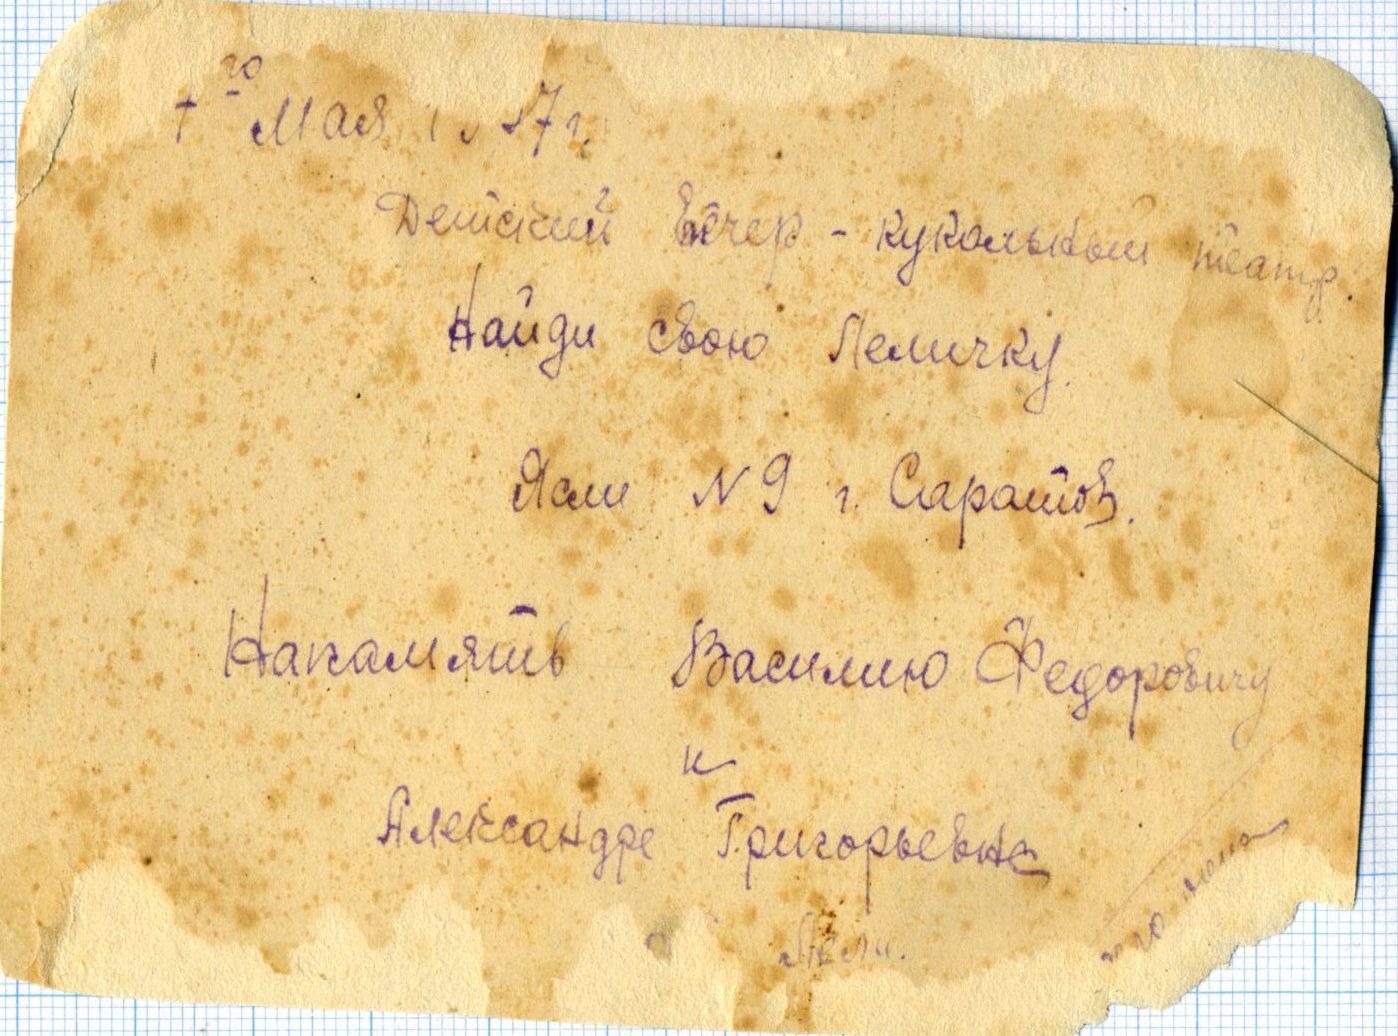 го
Мая 7 г.
Детский вечер - кукольный театр.
Найди свою Лемичку.
Ясли N 9 г. Саратов.
Напамять Василию Федоровичу
и
Александре Григорьевне